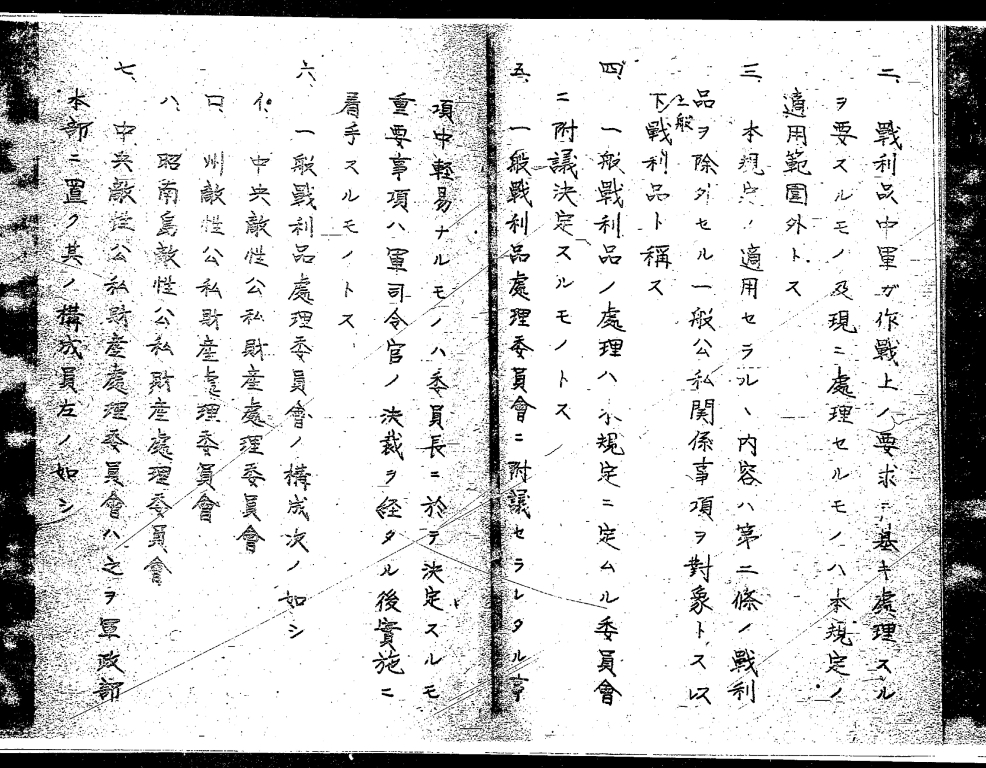 二、戰利品中軍ガ作戰上ノ要求ニ基キ處理スル
ヲ要スルモノ及現ニ處理セルモノハ本規定ノ
適用範圍外トス
三、本規定ノ適用セラルヽ內容ハ第二條ノ戰利
品ヲ除外セル一般公私關係事項ヲ對象トス以
下一般戰利品ト稱ス
四、一般戰利品ノ處理ハ本規定ニ定ムル委員會
ニ附議決定スルモノトス
五、一般戰利品處理委員會ニ附議セラレタル事
項中輕易ナルモノハ委員長ニ於テ決定スルモ
重要事項ハ軍司令官ノ決裁ヲ経タル後實施ニ
着手スルモノトス
六、一般戰利品處理委員會ノ構成次ノ如シ
イ、中央敵性公私財產處理委員會
ロ、州敵性公私財產處理委員會
ハ、昭南島敵性公私財產處理委員會
七、中央敵性公私財產處理委員會ハ之ヲ軍政部
本部ニ置ク其ノ構成員左ノ如シ